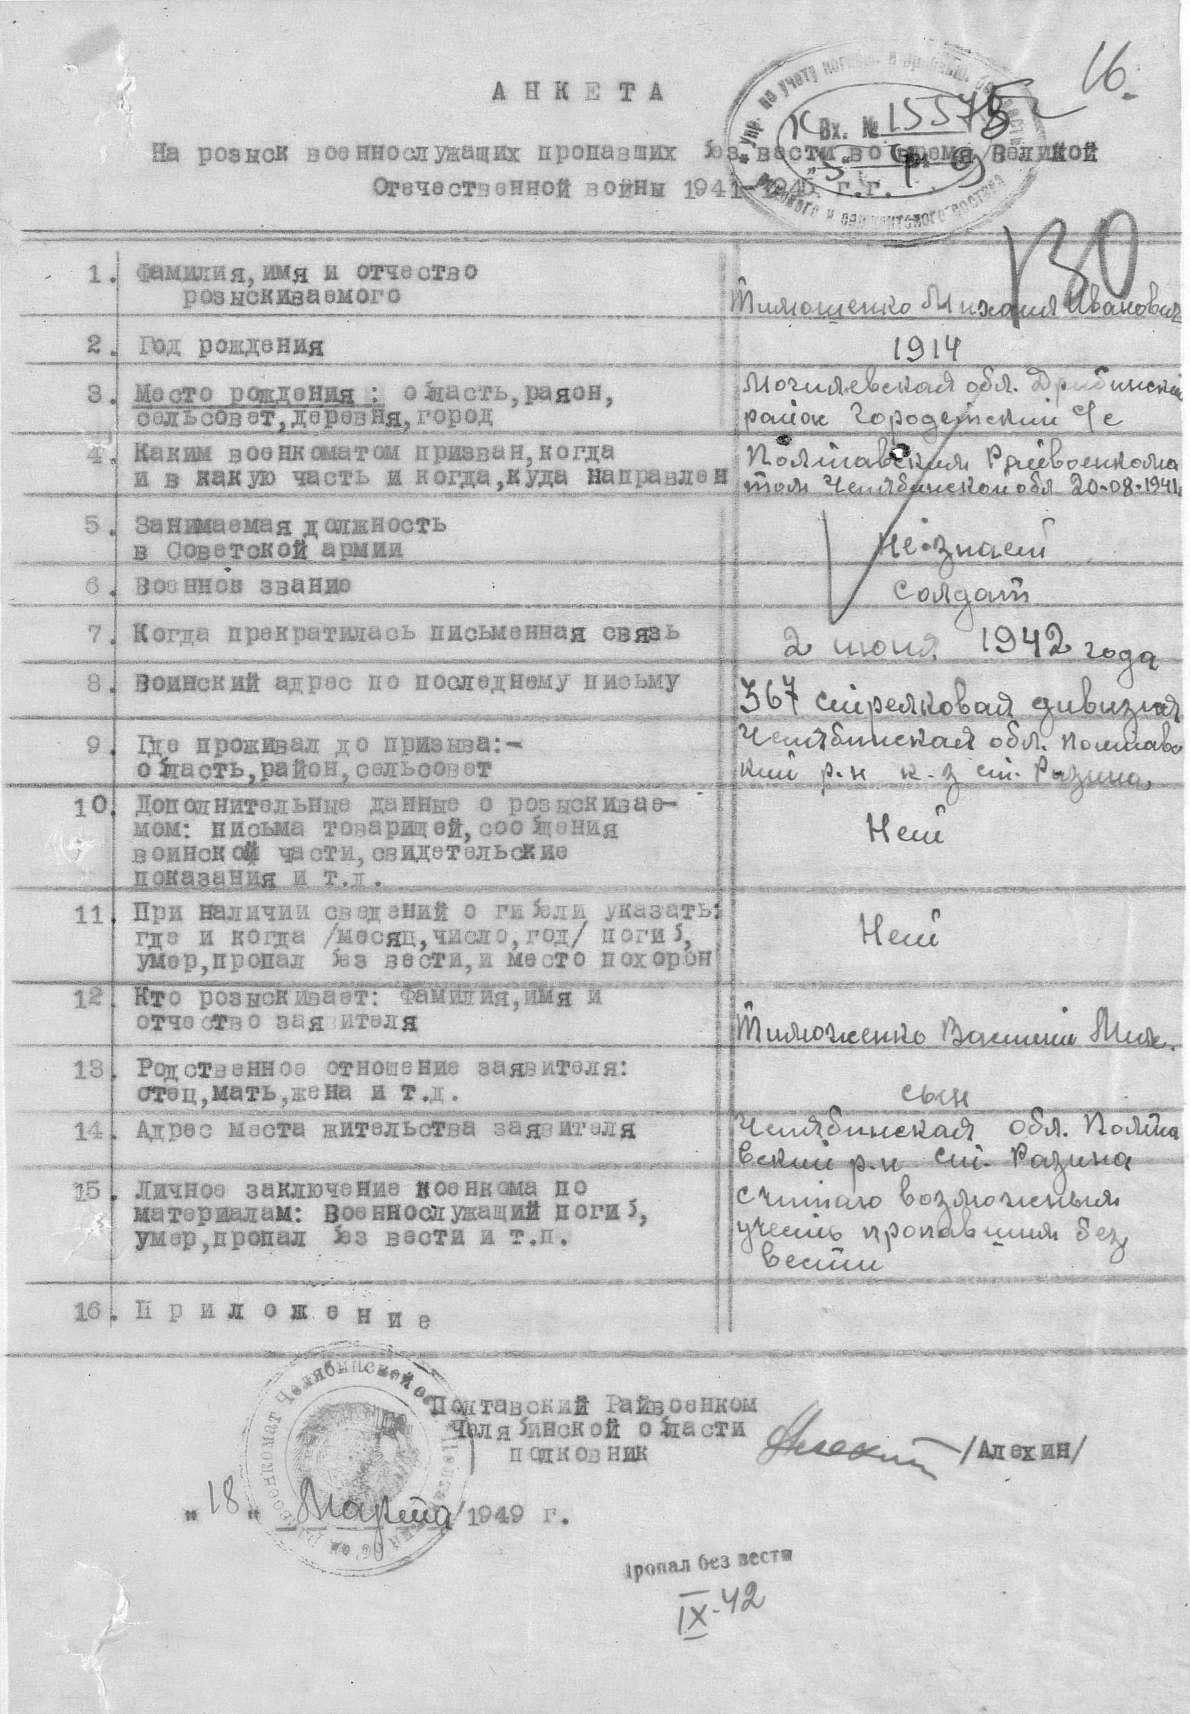 16.
АНКЕТА
Вх. № 15575
На розыск военнослужащих пропавших без вести во время Великой
Отечественной войны 1941-1945 г.г.
1. Фамилия, имя и отчество
розыскиваемого
Тимошенко Михаил Иванович
2. Год рождения
1914
3. Место рождения: область, район,
сельсовет, деревня, город
Могилевская обл. Дрибинский
район Городетский с/с
4. Каким военкоматом призван, когда
и в какую часть и когда, куда направлен
Полтавским Райвоенкома
том Челябинской обл 20-08-1941
5. Занимаемая должность
в Советской армии
не знает
6. Военное звание
солдат
7. Когда прекратилась письменная связь
2 июня 1942 года
8. Воинский адрес по последнему письму
367 стрелковая дивизия
9. Где проживал до призыва:-
область, район, сельсовет
Челябинская обл. Полтавс
кий р-н к-з ст. Разина
10. Дополнительные данные о розыскивае-
мом: письма товарищей, сообщения
воинской части, свидетельские
показания и т.д.
Нет
11. При наличии сведений о гибели указать:
где и когда /месяц, число, год/ погиб,
умер, пропал без вести, и место похорон
Нет
12. Кто розыскивает: Фамилия, имя и
отчество заявителя
Тиможенко Василий Мих.
13. Родственное отношение заявителя:
отец, мать, жена и т.д.
сын
14. Адрес места жительства заявителя
Челябинская обл. Полта
вский р-н ст. Разина
15. Личное заключение военкома по
материалам: Военнослужащий погиб,
умер, пропал без вести и т.п.
считаю возможным
учесть пропавшим без
вести
16. Приложение
Полтавский Райвоенком
Челябинской области
полковник
/Алехин/
"18" Марта 1949 г.
Пропал без вести
IX-42